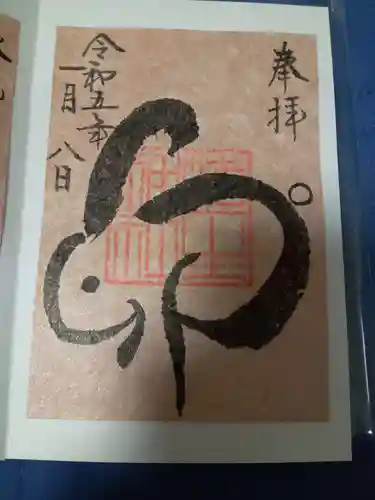 奉拝
卯
令和五年
一月八日